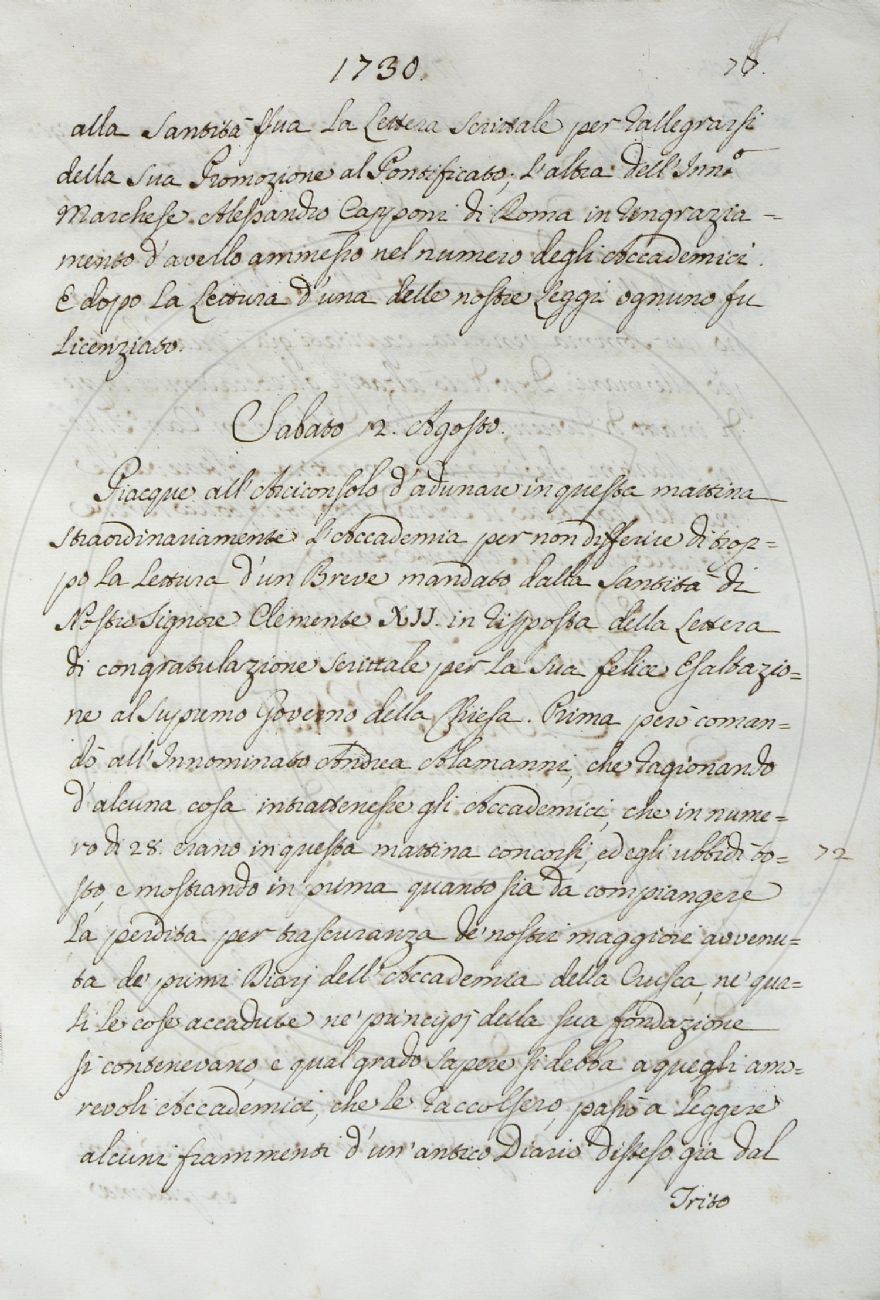 1730.
77.
alla Santità sua la Lettera scrittale per rallegrarsi
della sua Promozione al Pontificato; l'altra dell'Inno
Marchese Alessandro Capponi di Roma in ringrazia=
mento d'avello ammesso nel numero degli Accademici.
E dopo la Lettura d'una delle nostre Leggi ognuno fu
licenziato.
Sabato 12. Agosto.
Piacque all'Arciconsolo d'adunare in questa mattina
straordinariamente l'Accademia per non differire di trop=
po la Lettura d'un Breve mandato dalla Santità di
Nostro Signore Clemente XII. in risposta della Lettera
di congratulazione scrittale per la sua felice Esaltazio=
ne al supremo Governo della Chiesa. Prima però coman=
dò all'Innominato Andrea Alamanni, che ragionando
d'alcuna cosa intrattenesse gli Accademici, che in nume=
ro di 28. erano in questa mattina concorsi, ed egli ubbidì to=
72
sto, e mostrando in prima quanto sia da compiangere
la perdita per trascuranza de' nostri maggiori avvenu=
ta de' primi Diarj dell'Accademia della Crusca, ne' qua=
li le cose accadute ne' principj della sua fondazione
si contenevano, e qual grado sapere si debba a quegli amo=
revoli Accademici, che le raccolsero, passò a leggere
alcuni frammenti d'un'antico Diario disteso già dal
Trito